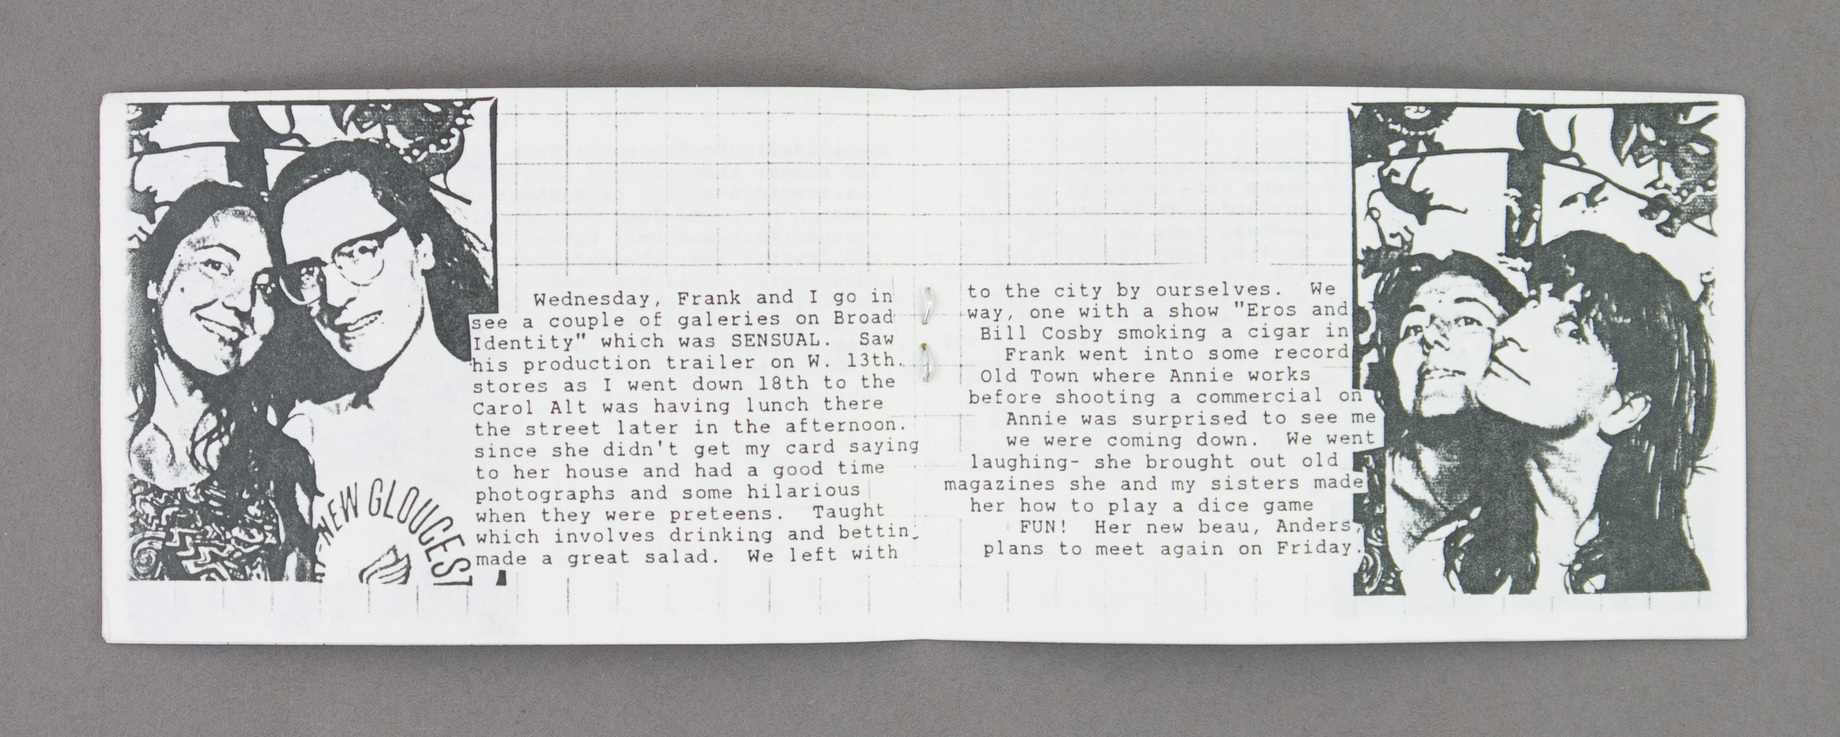 NEW GLOUCEST
Wednesday, Frank and I go in to the city by ourselves. We
see a couple of galeries on Broad way, one with a show "Eros and
Identity" which was SENSUAL. Saw Bill Cosby smoking a cigar in
his production trailer on W. 13th. Frank went into some record
stores as I went down 18th to the Old Town where Annie works
Carol Alt was having lunch there before shooting a commercial on
the street later in the afternoon. Annie was surprised to see me
since she didn't get my card saying we were coming down. We went
to her house and had a good time laughing- she brought out old
photographs and some hilarious magazines she and my sisters made
when they were preteens. Taught her how to play a dice game
which involves drinking and bettin FUN! Her new beau, Anders,
made a great salad. We left with plans to meet again on Friday.